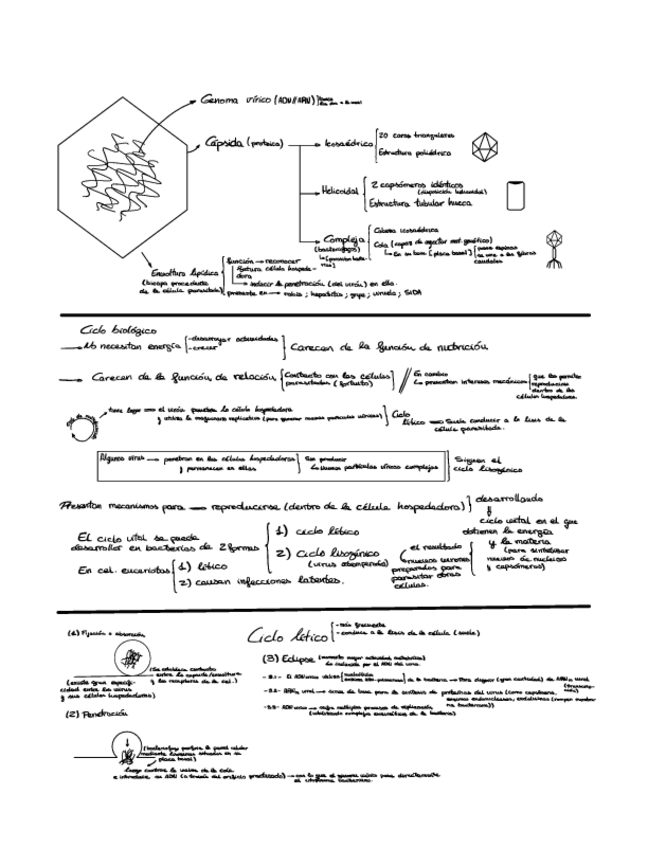 Genoma vírico (ADN//ARN)
Cápsida (proteica)
Icosaédrica
20 caras triangulares
Estructura poliédrica
Helicoidal
2 capsómeros idénticos
(disposición helicoidal)
Estructura tubular hueca
Compleja
(bacteriófagos)
Cabeza icosaédrica
Cola (capaz de inyectar mat. genético)
En su base [placa basal]
caudales
Envoltura lipídica
(bicapa procedente
de la célula parasitada)
función → reconocer
futura célula hospeda-
dora
inducir la penetración (del virión) en ella.
presente en → rabia; hepatitis; gripe; viruela; SIDA
Ciclo biológico
No necesitan energía
-desarrollar actividades
-crecer
Carecen de la función de nutrición
Carecen de la función de relación
Contacto con las células
parasitadas (fortuito)
En cambio
presentan intensos mecanismos
que les permite
reproducirse
dentro de las
células hospedadoras
tiene lugar → el virión parasita la célula hospedadora
y utiliza la maquinaria replicativa (para generar nuevas partículas víricas)
Ciclo
lítico → suele conducir a la lisis de la
célula parasitada.
Algunos virus → penetran en las células hospedadoras
y permanecen en ellas
Sin producir
nuevas partículas víricas complejas
Siguen el
ciclo lisogénico
Presentan mecanismos para → reproducirse (dentro de la célula hospedadora)
desarrollando
ciclo vital en el que
obtienen la energía
y la materia
(para sintetizar
nuevos ác. nucleicos
y capsómeros)
El ciclo vital se puede
desarrollar en bacterias de 2 formas
1) ciclo lítico
2) Ciclo lisogénico
(virus atemperado)
el resultado
nuevos viriones
preparados para
parasitar otras
células.
En cel. eucariotas
1) lítico
2) causan infecciones latentes.
Ciclo lítico
-más frecuente
-conduce a la lisis de la célula (suele)
(1) Fijación o absorción
Se establece contacto
(existe gran especifi-
cidad entre los virus
y sus células hospedadoras)
y los receptores de la cel.)
(2) Penetración
placa basal)
(3) Eclipse (momento mayor actividad metabólica)